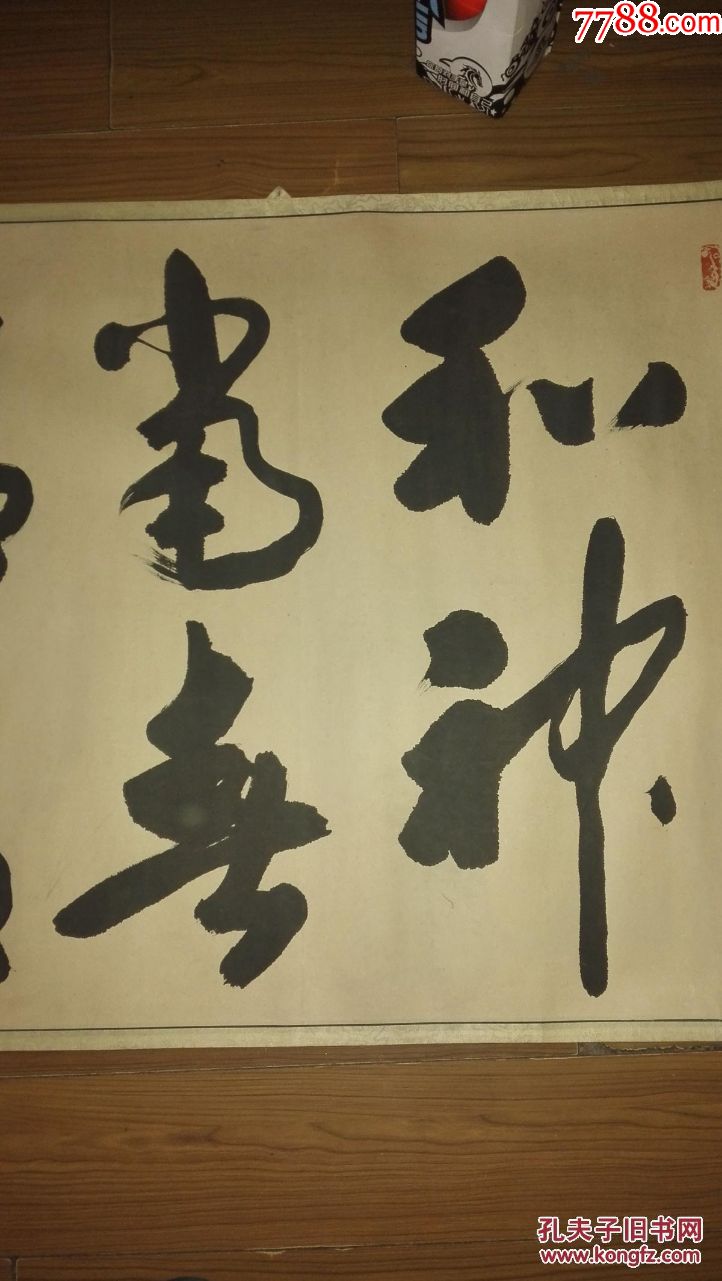 7788.com
和神
當春
孔夫子旧书网
www.kongfz.com